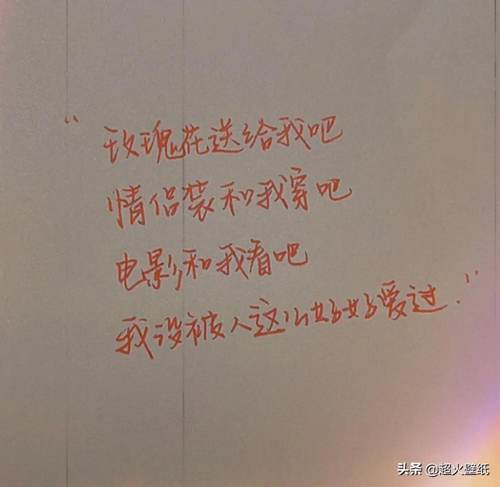 “玫瑰花送给我吧
情侣装和我穿吧
电影和我看吧
我没被人这么好好爱过.”
头条 @超火壁纸